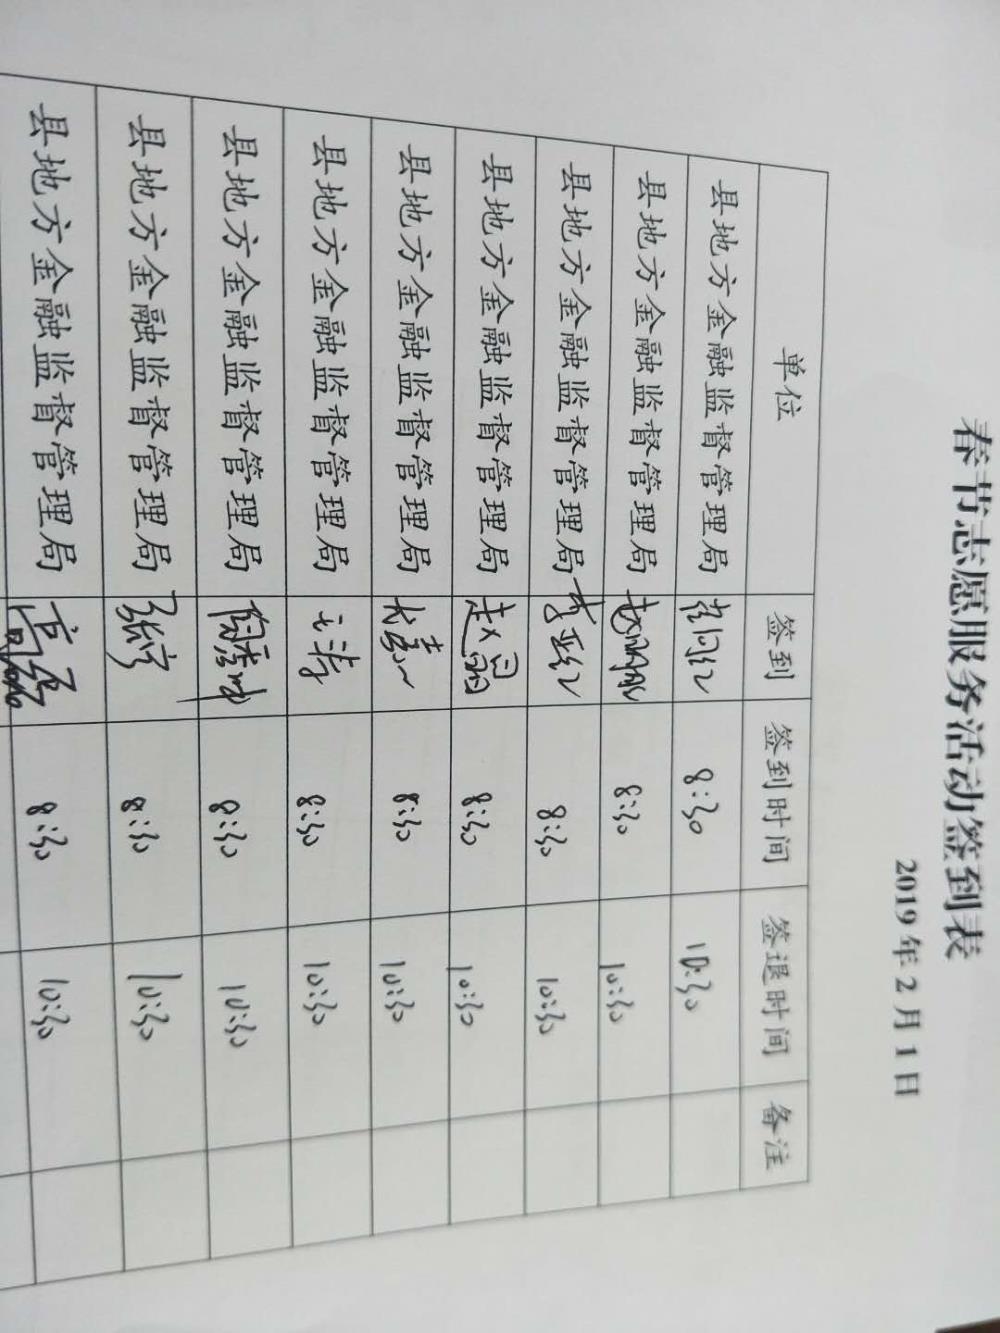 春节志愿服务活动签到表
2019年2月1日
单位 签到 签到时间 签退时间 备注
县地方金融监督管理局 8:30 10:30
县地方金融监督管理局 8:30 10:30
县地方金融监督管理局 李亚红 8:30 10:30
县地方金融监督管理局 8:30 10:30
县地方金融监督管理局 8:30 10:30
县地方金融监督管理局 王涛 8:30 10:30
县地方金融监督管理局 8:30 10:30
县地方金融监督管理局 张宁 8:30 10:30
县地方金融监督管理局 8:30 10:30